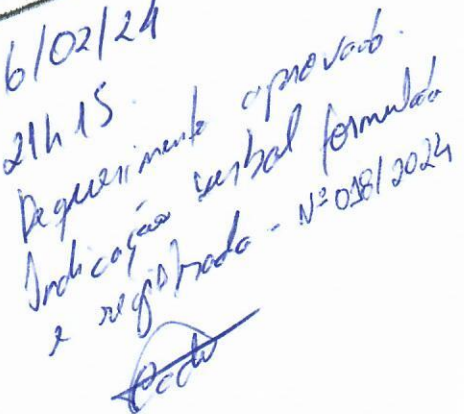 6/02/24
21h15.
Requerimento aprovado.
Indicação verbal formulada
e registrada - Nº 018/2024